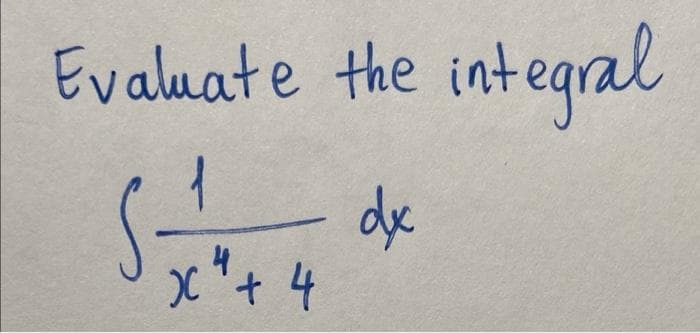 Evaluate the integral
∫ 1/(x⁴ + 4) dx